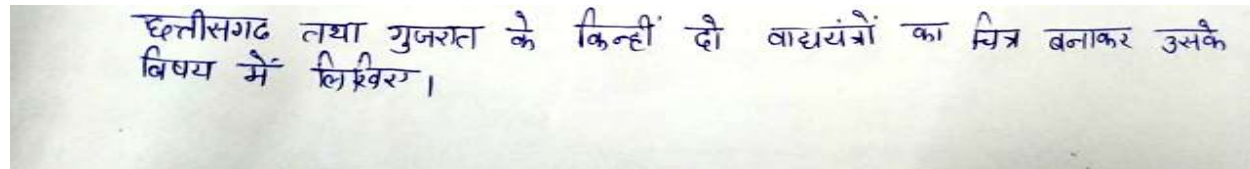 छत्तीसगढ तथा गुजरात के किन्हीं दो वाद्ययंत्रों का चित्र बनाकर उसके
विषय में लिखिए।